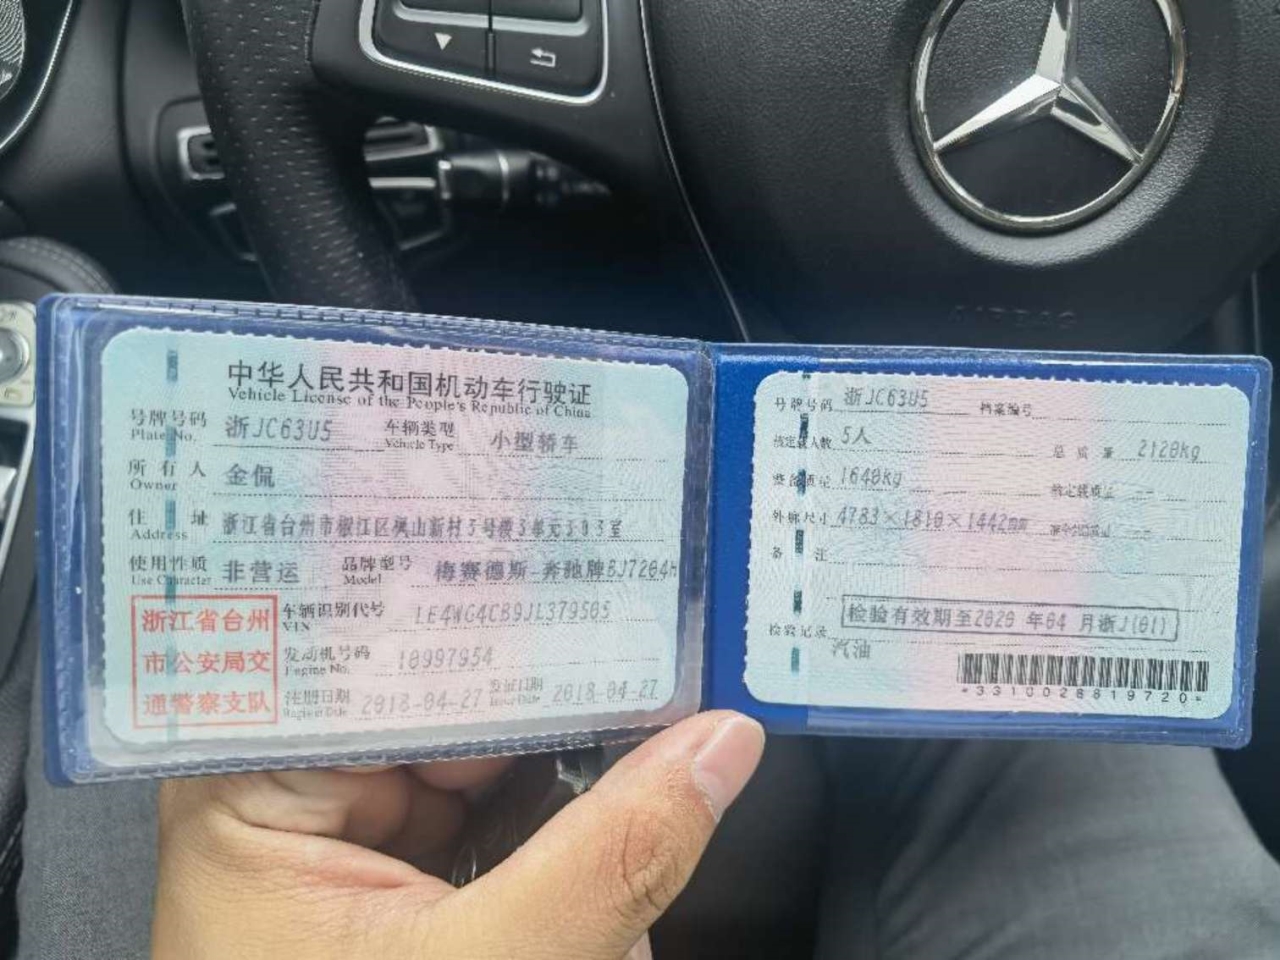 中华人民共和国机动车行驶证
Vehicle License of the People's Republic of China
号牌号码 Plate No. 浙JC63U5 车辆类型 Vehicle Type 小型轿车
所有人 Owner 金侃
住址 Address 浙江省台州市椒江区枫山新村3号楼3单元303室
使用性质 Use Character 非营运 品牌型号 Model 梅赛德斯-奔驰牌BJ7204H
浙江省台州
市公安局交
通警察支队
车辆识别代号 VIN LE4WG4CB9JL379505
发动机号码 Engine No. 10997954
注册日期 Register Date 2018-04-27 发证日期 Issue Date 2018-04-27
号牌号码 浙JC63U5 档案编号
核定载人数 5人 总质量 2120kg
整备质量 1640kg 核定载质量 --
外廓尺寸 4783×1810×1442mm --
备注
检验有效期至2020年04月浙J(01)
检验记录
汽油
*3310026819720*